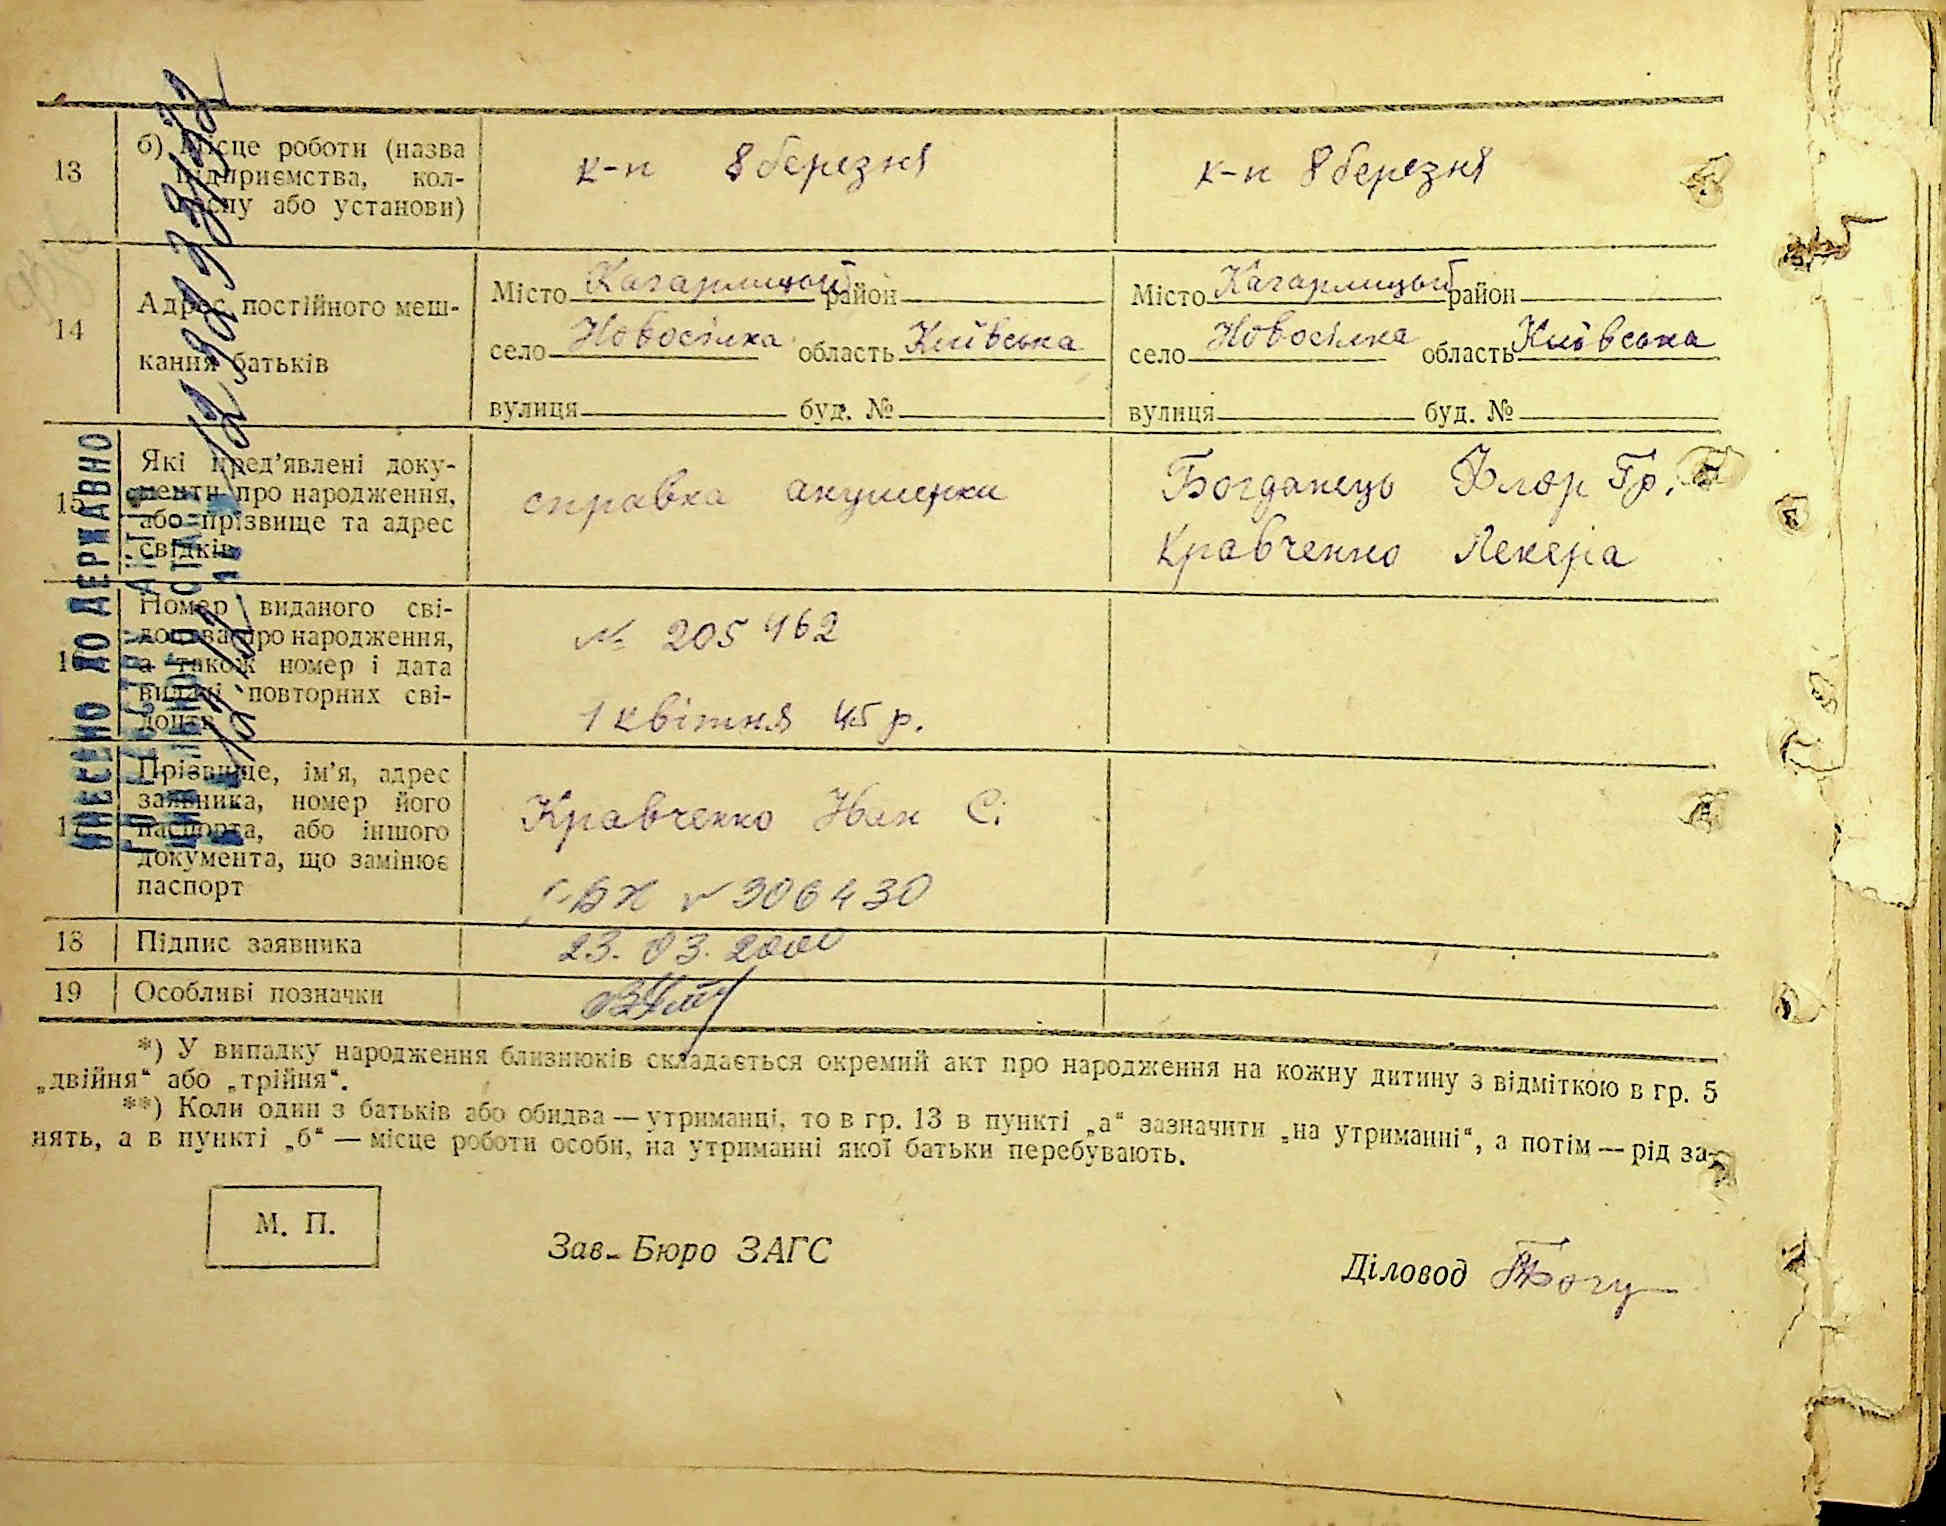 13
б) Місце роботи (назва
підприємства, кол-
госпу або установи)
к-п 8 березня
к-п 8 березня
14
Адрес постійного меш-
кання батьків
Місто Кагарлицький район
село Новосілка область Київська
вулиця буд. №
Місто Кагарлицький район
село Новосілка область Київська
вулиця буд. №
15
Які пред’явлені доку-
менти про народження,
або прізвище та адрес
свідків
справка акушерки
Богданець Флор Гр.
Кравченко Лекера
16
Номер виданого сві-
доцтва про народження,
а також номер і дата
видачі повторних сві-
доцтв
№ 205462
1 квітня 45 р.
17
Прізвище, ім’я, адрес
заявника, номер його
паспорта, або іншого
документа, що замінює
паспорт
Кравченко Иван С.
306430
18
Підпис заявника
23.03.2000
19
Особливі позначки
ВНЕСЕНО ДО ДЕРЖАВНО
*) У випадку народження близнюків складається окремий акт про народження на кожну дитину з відміткою в гр. 5
„двійня“ або „трійня“.
**) Коли один з батьків або обидва — утриманці, то в гр. 13 в пункті „а“ зазначити „на утриманні“, а потім — рід за-
нять, а в пункті „б“ — місце роботи особи, на утриманні якої батьки перебувають.
М. П.
Зав. Бюро ЗАГС
Діловод